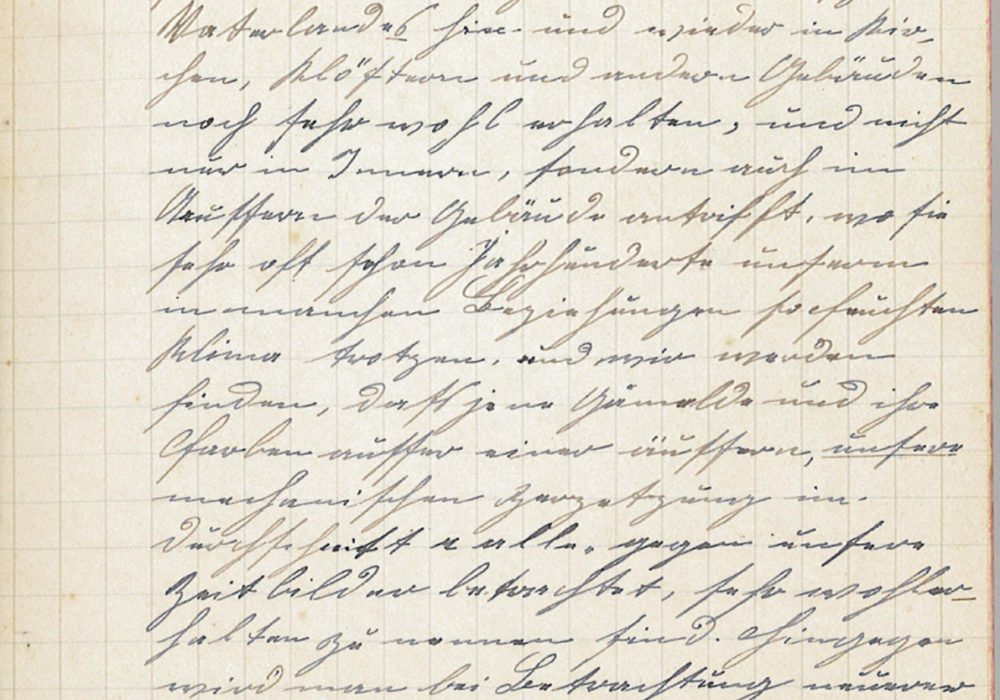 Vaterlandes hin und wieder in Kir-
chen, Klöstern und andern Gebäuden
noch sehr wohl erhalten, und nicht
nur in Innern, sondern auch im
Äussern der Gebäude antrifft, wo sie
sehr oft schon Jahrhunderte unserm
in manchen Beziehungen so feuchten
Klima trotzen, und wir werden
finden, daß jene Gämelde und ihre
Farben ausser einer äussern, unsere
mechanischen Zerzetzung im
durchschnitt alle, gegen unsere
Zeitbilder betrachtet, sehr wohler-
halten zu nennen sind. Hingegen
wird man bei Betrachtung neuerer